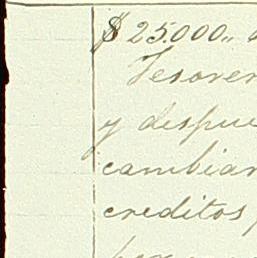 $ 25.000..
Tesorer
y despue
cambiar
creditos